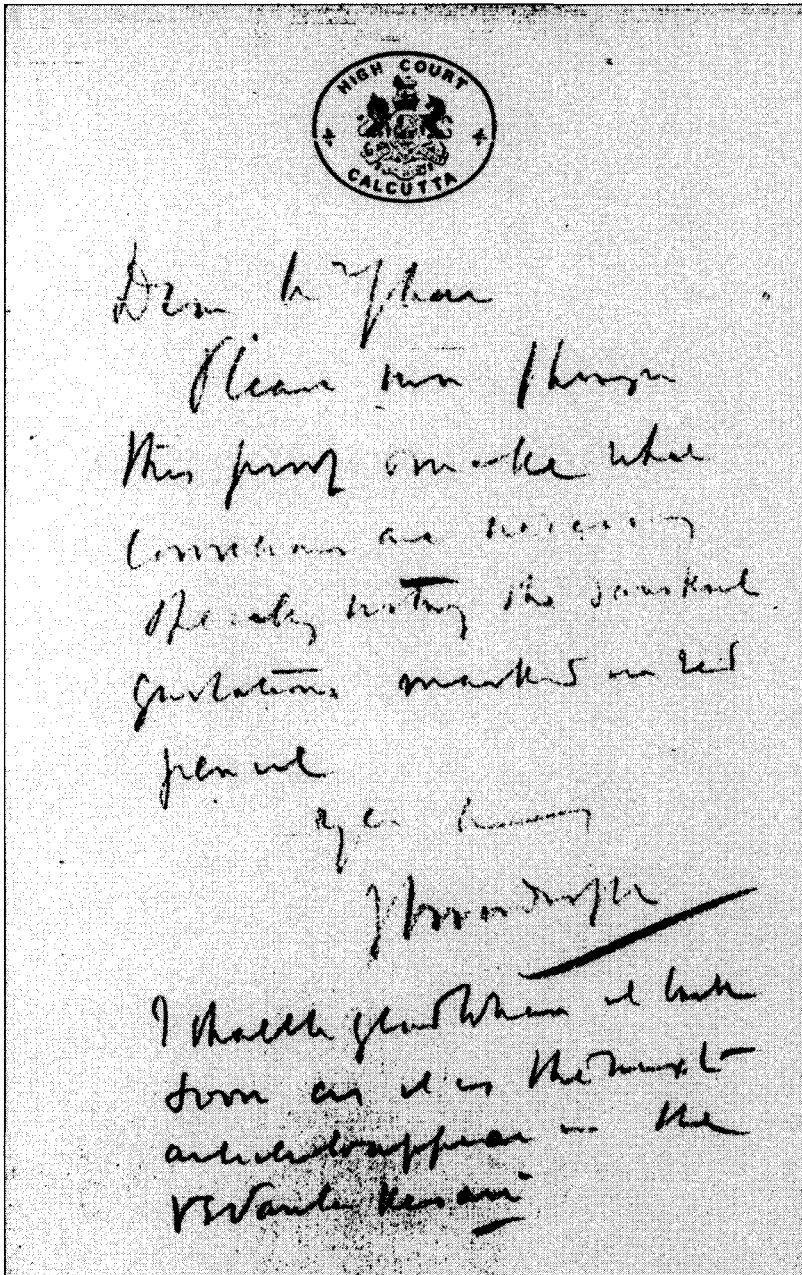 HIGH COURT
CALCUTTA
Dear Mr Ghose
Please run through
this proof & make what
corrections are necessary
thereby noting the Sanskrit
quotations marked in red
pencil
J G Woodroffe
I shall be glad to have it back
soon as it is the next
article to appear in the
Vedanta Kesari